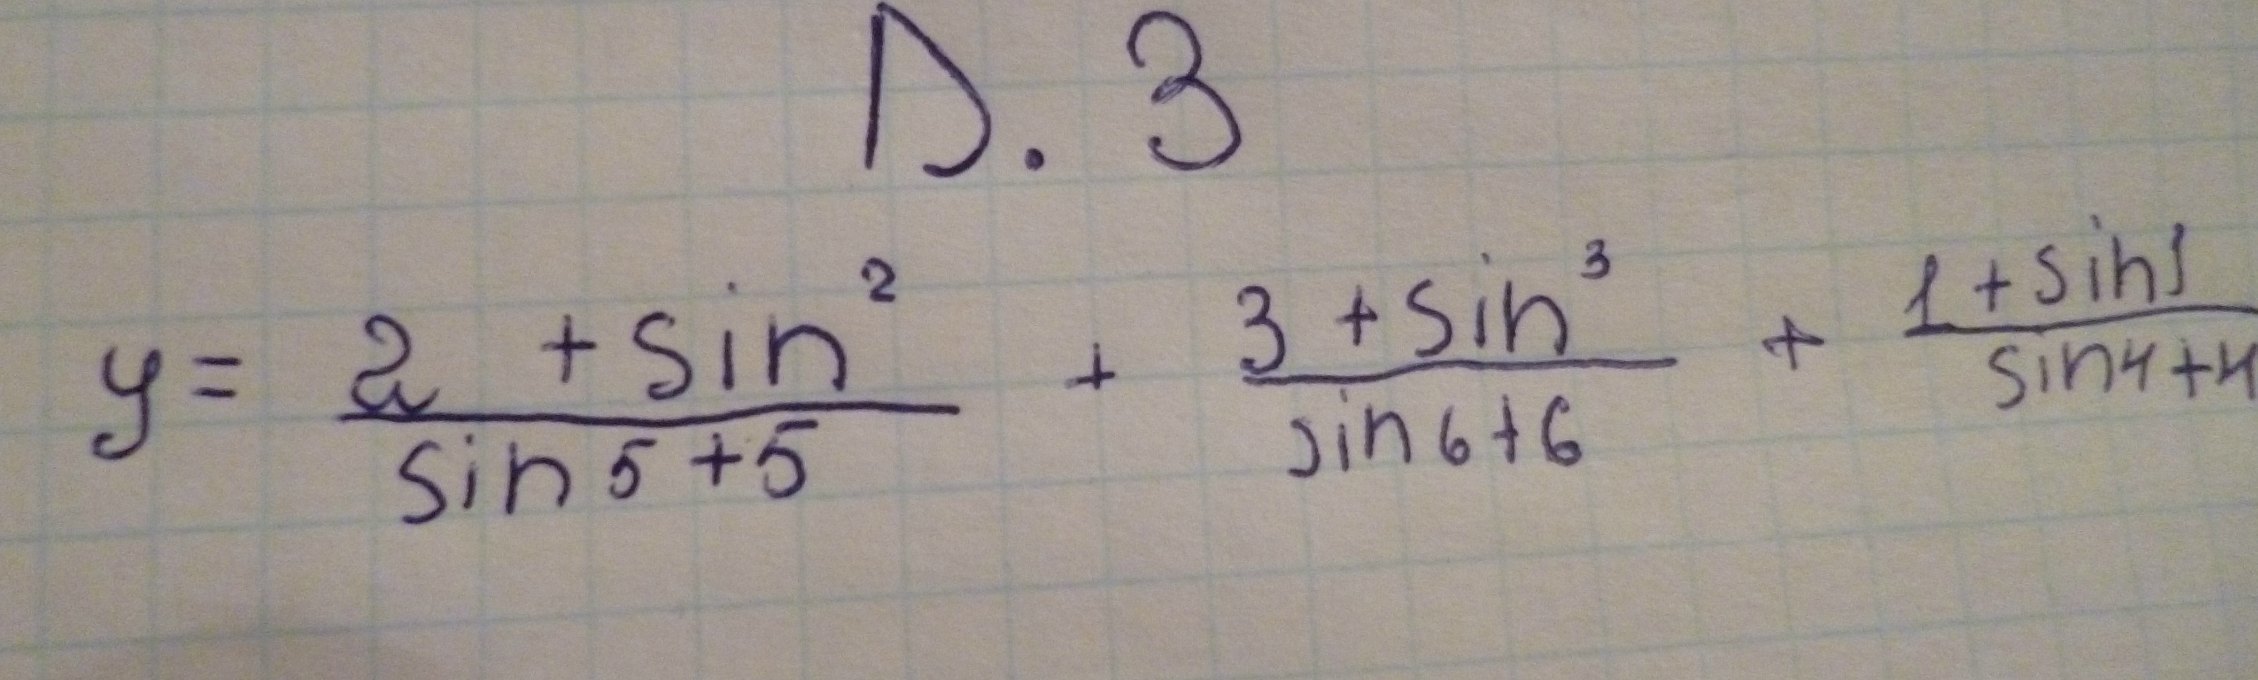 D. 3
y = (2 + sin²)/(sin5+5) + (3 + sin³)/(sin6+6) + (1 + sin1)/(sin4+4)